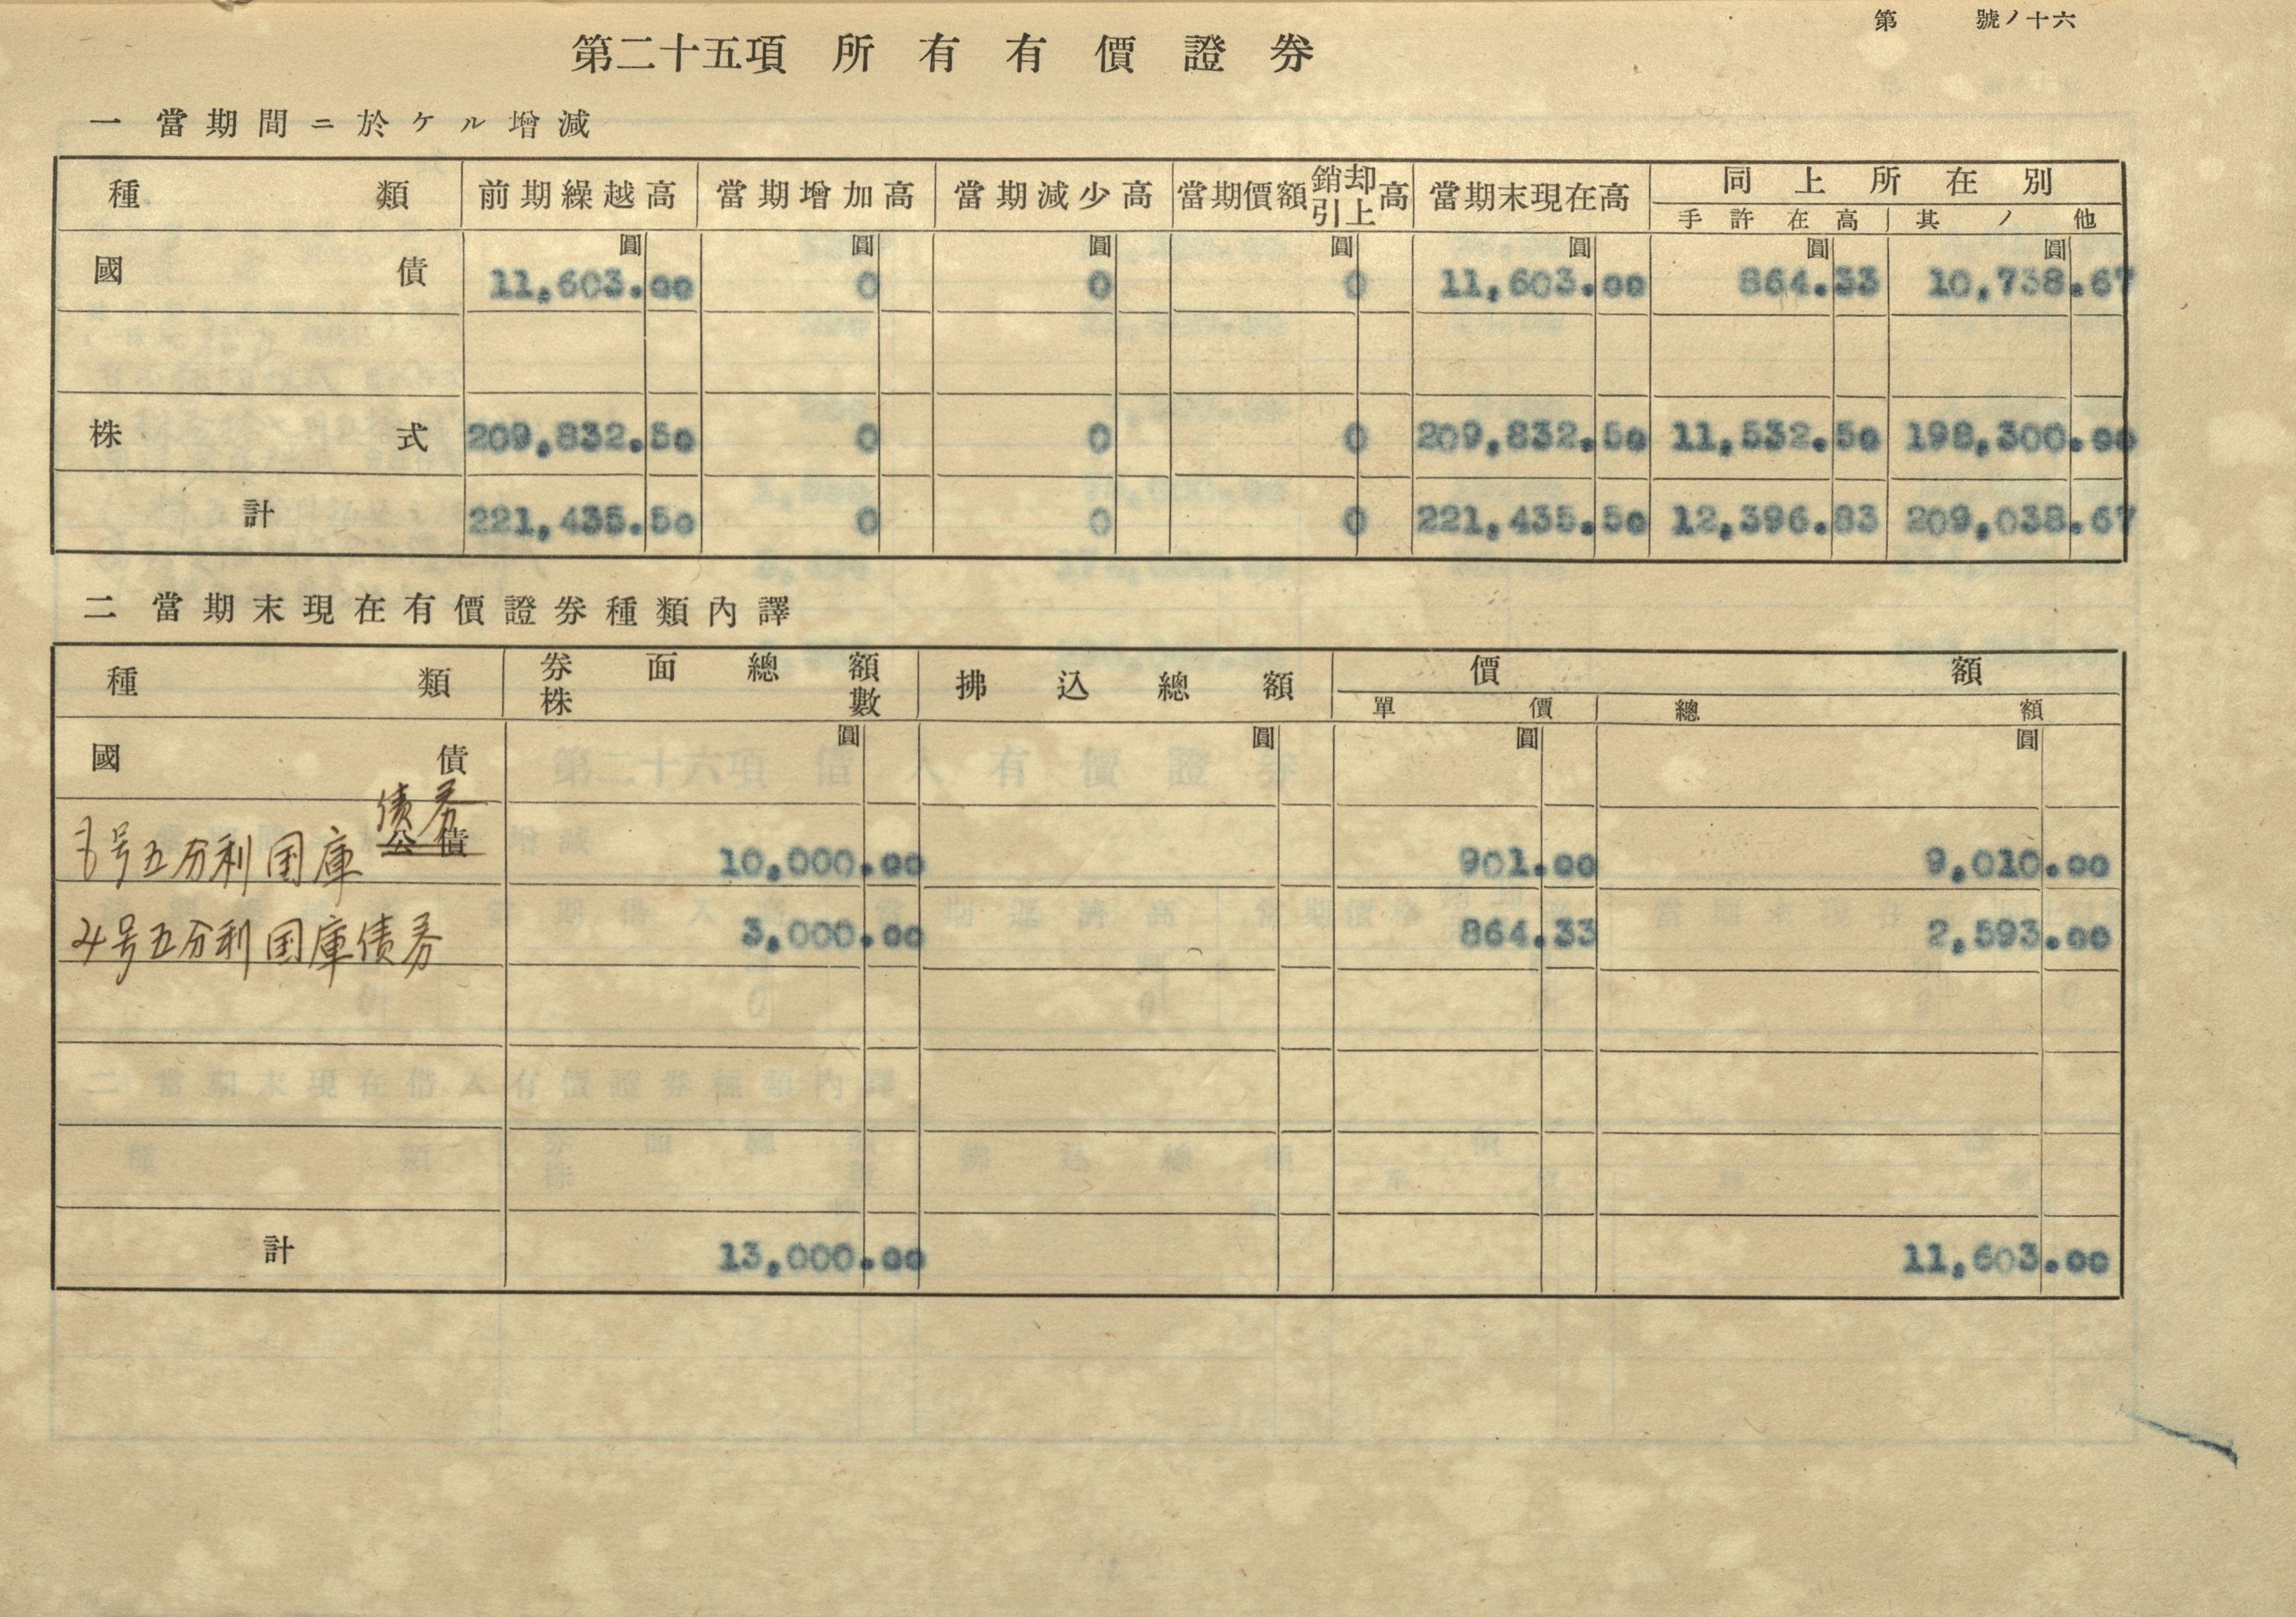 第 號ノ十六
第二十五項 所有有價證券
一 當期間ニ於ケル増減
種類 前期繰越高 當期増加高 當期減少高 當期價額銷却引上高 當期末現在高 同上所在別
手許在高 其ノ他
圓 圓 圓 圓 圓 圓 圓
國債 11,603.00 0 0 0 11,603.00 864.33 10,738.67
株式 209,832.50 0 0 0 209,832.50 11,532.50 198,300.00
計 221,435.50 0 0 0 221,435.50 12,396.83 209,038.67
二 當期末現在有價證券種類內譯
種類 券面總額 株數 拂込總額 價額
單價 總額
國債 圓 圓 圓 圓
債券
号五分利国庫公債 10,000.00 901.00 9,010.00
号五分利国庫債券 3,000.00 864.33 2,593.00
計 13,000.00 11,603.00